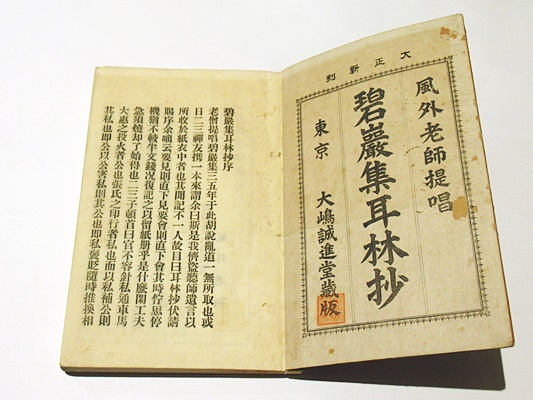 大正新刻
風外老師提唱
碧巖集耳林抄
東京 大嶋誠進堂藏版
碧巖集耳林抄序
老僧提唱碧巖集三五年于此胡說亂道一無所取也或
日二三禪友携一本來謂余曰斯是我儕盜聽師遺言以
所收於紙衣中者也其聞記不一人故目曰耳林抄伏請
賜序余咄云要見則直下見要會則直下會其時佇思停
機猶不較半文錢況復記之以留紙册乎是什麼閑工夫
急須燒却了始得也二三子頓首曰官不容針私通車馬
大惠之投火者公也張氏之印行者私也而以私補公則
其私也即公以公害私則其公也即私褒貶隨時推換相